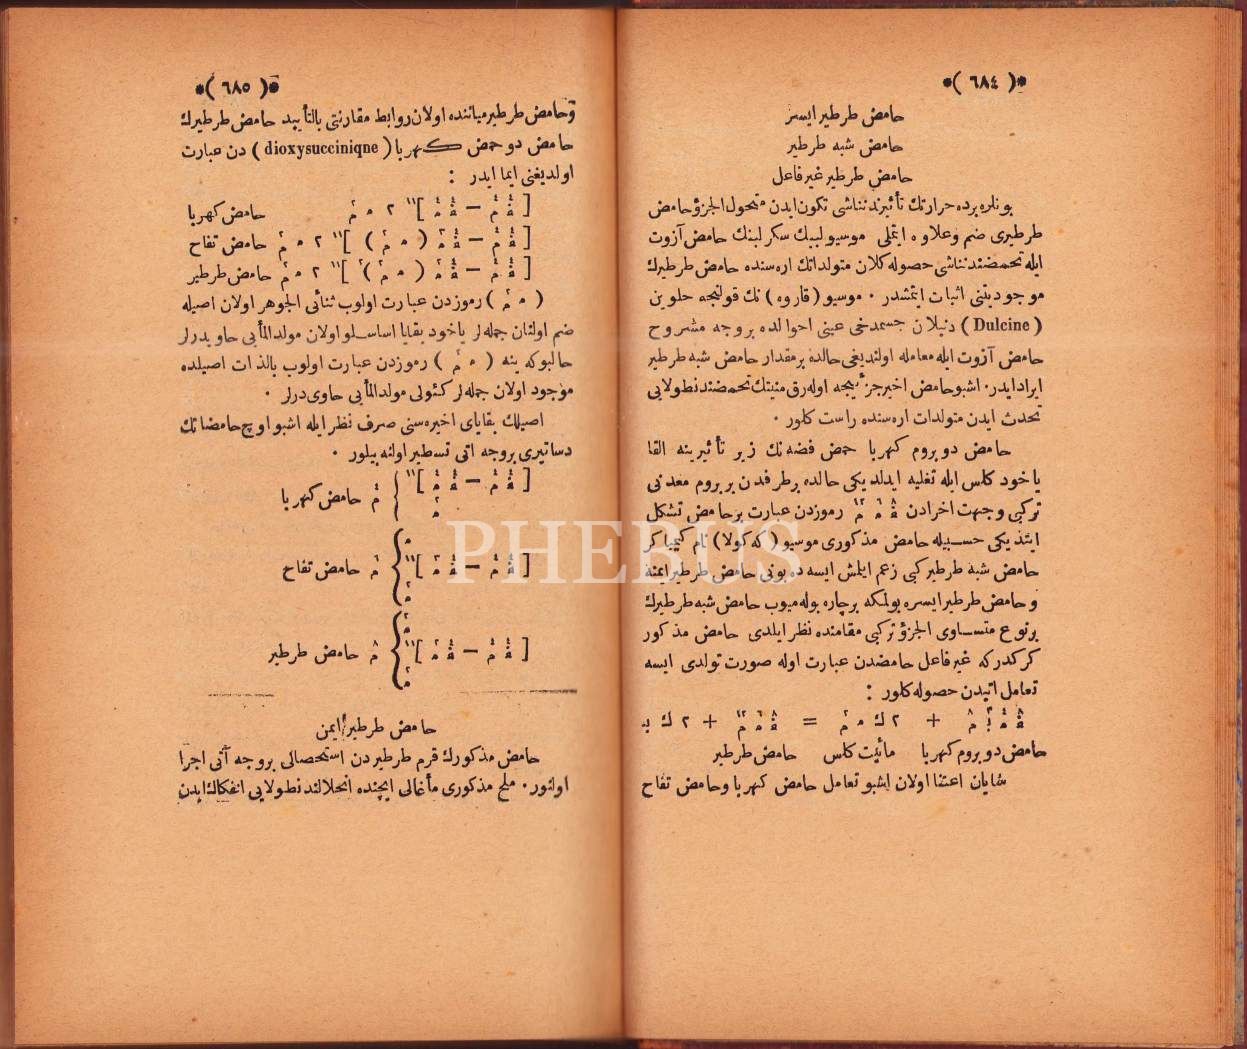 *( ٦٨٤ )*
حامض طرطير ايسر
حامض شبه طرطير
حامض طرطير غير فاعل
بونلره برده حرارتك تأثيرندن ناشى تكون ايدن متحول الجزؤ حامض
طرطيرى ضم وعلاوه ايتملى موسيو ليبيك سكر لبنك حامض آزوت
ايله تحمضندن ناشى حصوله كلان متولداتك اره سنده حامض طرطيرك
موجوديتنى اثبات ايتمشدر ٠ موسيو ( قاروه ) نك قولنجه حلوين
( Dulcine ) دنيلان جسمدخى عينى احوالده بروجه مشروح
حامض آزوت ايله معامله اولنديغى حالده برمقدار حامض شبه طرطير
ايراد ايدر ٠ اشبو حامض اخير جزأ نيجه اوله رق متيتك تحمضندن طولايى
تحدث ايدن متولدات اره سنده راست كلور ٠
حامض دوبروم كهربا حمض فضه نك زير تأثيرينه القا
ياخود كلس ايله تغليه ايدلديكى حالده برطرفدن بربروم معدنى
تركبى وجهت اخرادن رموزدن عبارت برحامض تشكل
ايتديكى حسبيله حامض مذكورى موسيو ( كه كولا ) نام كيمياكر
حامض شبه طرطير كبى زعم ايلمش ايسه ده بونى حامض طرطير ايمنه
وحامض طرطير ايسره بولمكه برچاره بوله ميوب حامض شبه طرطيرك
برنوع متساوى الجزؤ تركبى مقامنده نظر ايلدى حامض مذكور
كركدركه غير فاعل حامضدن عبارت اوله صورت تولدى ايسه
تعامل اتيدن حصوله كلور :
حامض دوبروم كهربا مائيت كلس حامض طرطير
شايان اعتنا اولان اشبو تعامل حامض كهربا وحامض تفاح
*( ٦٨٥ )*
وحامض طرطير مياننده اولان روابط مقارنتى بالتأييد حامض طرطيرك
حامض دو حمض كهربا ( dioxysucciniqne ) دن عبارت
اولديغنى ايما ايدر :
حامض كهربا
حامض تفاح
حامض طرطير
رموزدن عبارت اولوب ثنائى الجوهر اولان اصيله
ضم اولنان جمله لر ياخود بقايا اساسلو اولان مولد المأيى حاويدرلر
حالبوكه ينه رموزدن عبارت اولوب بالذات اصيلده
موجود اولان جمله لر كئولى مولد المأيى حاوى درلر ٠
اصيلك بقاياى اخيره سنى صرف نظر ايله اشبو اوچ حامضاتك
دساتيرى بروجه اتى تسطير اولنه بيلور ٠
حامض كهربا
حامض تفاح
حامض طرطير
حامض طرطير ايمن
حامض مذكورك قرم طرطيردن استحصالى بروجه آتى اجرا
اولنور ٠ ملح مذكورى مأ غالى ايچنده انحلالندن طولايى انفكاك ايدن
PHEBUS